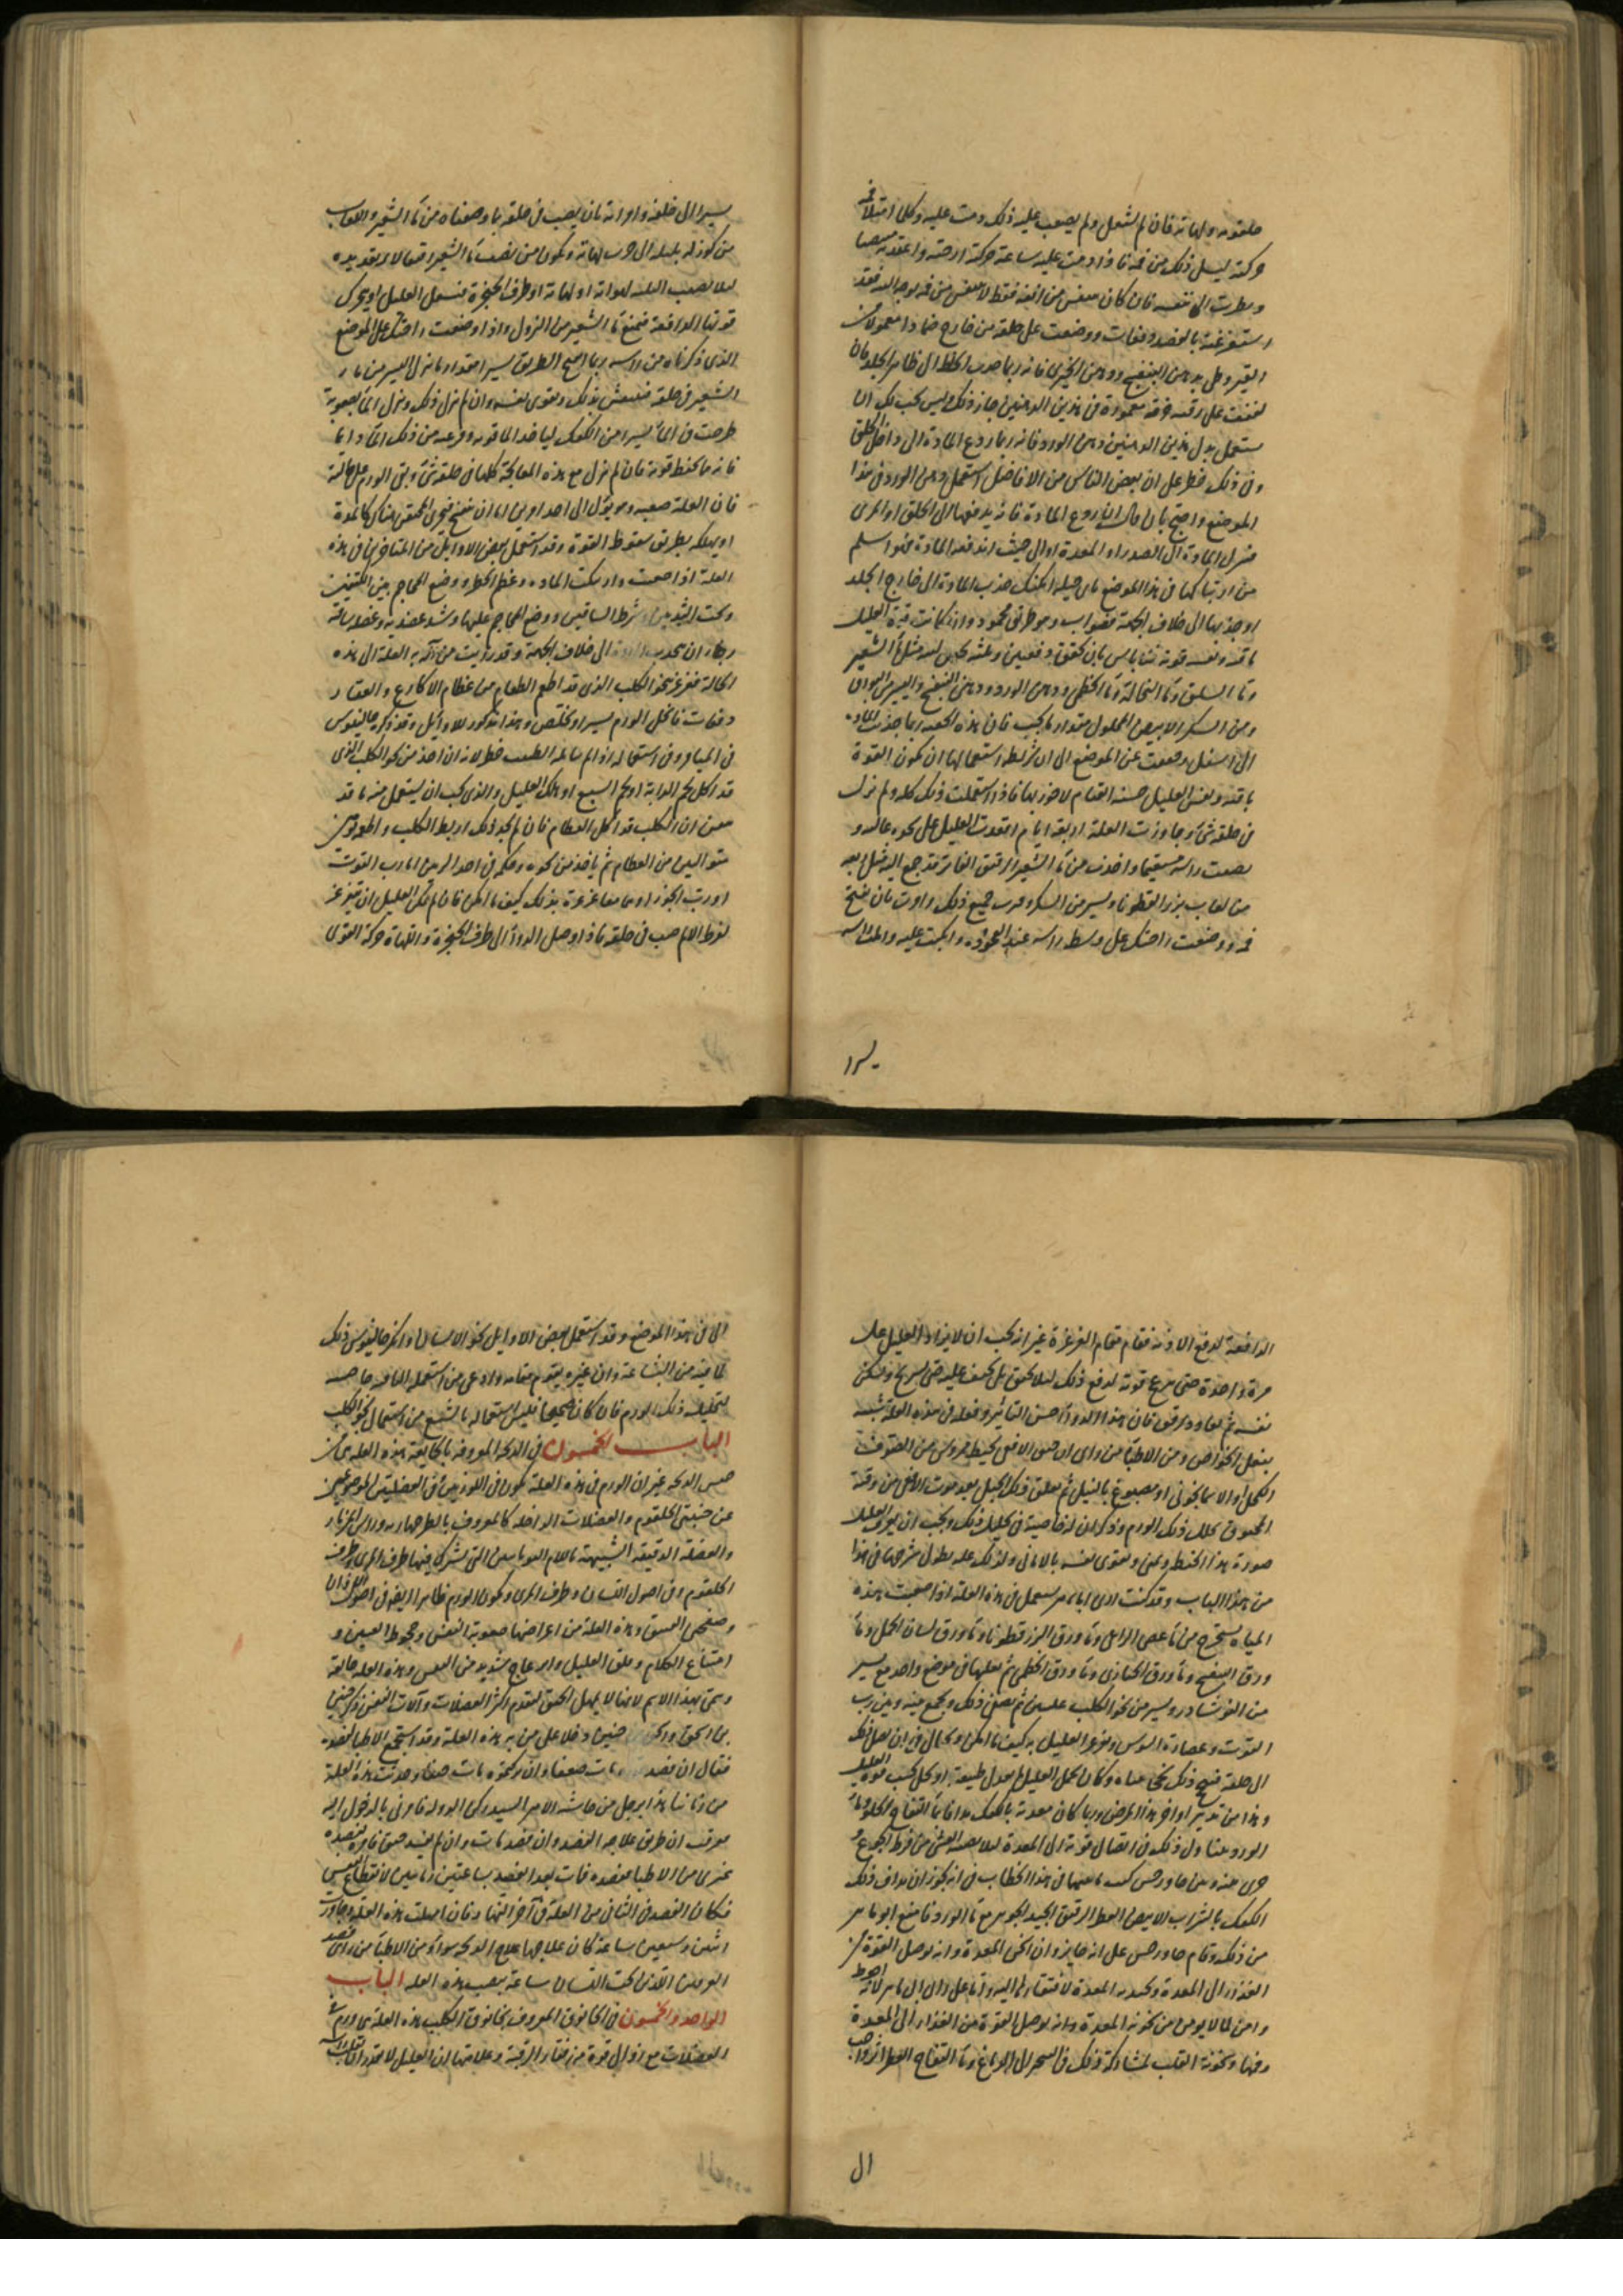 حلقومه ولهاته فان لم يشتعل ولم يصعب عليه ذلك دمت عليه وكلما امتلا فمه
حركته ليسيل ذلك من فمه فاذا دمت عليه ساعة حركته ارحته واعقدته
ونظرت الى تنفسه فان كان يتنفس من انفه فقط لا يتنفس من فمه بوجه البتة فقد
استفرغته بالفصد دفعات ووضعت على حلقه من خارج ضمادا معمولا من
القير وطي بدهن البنفسج ودهن الخيري فانه ربما جذب الخلط الى ظاهر الجلد فان
لففت على رقبته خرقة مغموسة في هذين الدهنين جاز ذلك وليس يجب لك ان
تستعمل بدل هذين الدهنين دهن الورد فانه ربما ردع المادة الى داخل الحلق
وفي ذلك خطر على ان بعض الناس من الافاضل استعمل دهن الورد في هذا
الموضع واحتج بان قال اني اردع المادة فانه يدفعها الى الحلق او المري
فينزل المادة الى الصدر او المعدة او الى حيث اندفعت المادة فهو اسلم
من ارتباكها في هذا الموضع باي حيلة امكنك جذب المادة الى خارج الجلد
او جذبها الى خلاف الجهة فصواب وهو طريق محمود واذا كانت قوة العليل
باقية ونفسه قوية فلا باس بان يحقن دفعتين وثلثة بحقن لينة مثل ماء الشعير
وماء السلق وماء النخالة وماء الخطمي ودهن الورد ودهن البنفسج واليسير من البورق
ومن السكر الابيض المحلول مقدار ما يجب فان هذه الحقنة ربما جذبت المادة
الى اسفل وخففت عن الموضع الا ان شرايط استعمالها ان يكون القوة
باقية ونفس العليل حسنة القيام لا خور بها فاذا استعملت ذلك كله ولم ينزل
في حلقه شيء وجاوزت العلة اربعة ايام اقعدت العليل على نحوه عاليه و
نصبت راسه مستقيما واخذت من ماء الشعير الرقيق الفاتر قد جمع اليه مثل ربعه
من لعاب بزر القطونا ويسير من السكر ومرست جميع ذلك وامرت بان يفتح
فمه ووضعت راحتك على وسط راسه عند اليافوخ واتكيت عليه وامال راسه
يسيرا
يسيرا الى خلفه وامرته بان يصب في حلقه ما وصفناه من ماء الشعير واللعاب
من كوز له بلبلة الى قرب لهاته ويكون من يصب ماء الشعير رفيقا لا يرتعد يده
ليلا يصيب البلبلة لهواته او لهاته او طرف الحنجرة فيسعل العليل او يتحرك
قوتها الدافعة فتمنع ماء الشعير من النزول واذا وضعت راحتك على الموضع
الذي ذكرناه من راسه ربما انفتح الطريق يسيرا مقدار ما ينزل اليسير من ماء
الشعير في حلقه فينتعش بذلك ويقوى نفسه وان لم ينزل ذلك ونزل الماء بصعوبة
طرحت في الماء يسيرا من الكعك لياخذ الماء قوته وجرعته من ذلك الماء دايما
فانه مما يحفظ قوته فان لم ينزل مع هذه المعالجة كلها في حلقه شيء وبقي الورم على حاله
فان العلة صعبة وهو يؤل الى احد امرين اما ان ينفتح فيجري المحتقن هناك كالمدة
او يهلكه بطريق سقوط القوة وقد استعمل بعض الاوايل من المتاخرين في هذه
العلة اذا صعبت وارتبكت المادة وعظم الخطر ووضع المحاجم بين الكتفين
وتحت الثديين وشرط الساقين ووضع المحاجم عليها وشد عضديه وعضل ساقه
رجاء ان يجذب المادة الى خلاف الجهة وقد رايت من آلت به العلة الى هذه
الحالة فغرغر بخو الكلب الذي قد اطعم الطعام من عظام الاكارع والعقار
دفعات فانحل الورم يسيرا وتخلص وهذا مذكور للاوايل وقد ذكره جالينوس
في الميامر وفي استعماله اذا لم يتامله الطبيب خطر لانه ان اخذ من خو الكلب الذي
قد اكل لحم الدابة او لحم السبع اهلك العليل والذي يجب ان يستعمل منه ما قد
تيقن ان الكلب قد اكل العظام فان لم يجد ذلك اربط الكلب واطعم يومين
متواليين من العظام ثم ياخذ من نحوه وحكمه في احد الربين اما رب التوت
او رب الجوز او هما معا غرغره بذلك كيف ما امكن فان لم يمكن العليل ان يتغرغر
لفرط الالم صب في حلقه فاذا وصل الدواء الى طرف الحنجرة واللهاة حركه القوى
الدافعة لدفع الاذية فقام مقام الغرغرة غير انه يجب ان لا يزاد العليل على
مرة واحدة حتى يرجع قوته لدفع ذلك ليلا يختنق بل يخفف عليه حتى يستريح ويسكن
نفسه ثم يعاود برفق فان هذا الدواء حسن التاثير وفعله في هذه العلة شبيه
بفعل الخواص ومن الاطباء من راى ان خنق الافعى بخيط مغموس من الصوف
الكحلي او الاسمانجوني او مصبوغ بالنيل ثم يعلق ذلك الحبل بعد موت الافعى من رقبة
المخنوق تحلل ذلك الورم وذكر ان له خاصية في تحليل ذلك ويجب ان يعرف العليل
صورة هذا الخيط ويمنى ويقوى نفسه بالاماني ولذلك علة يطول شرحها في هذا
من هذا الباب وقد كنت ارى ابا ماهر يستعمل في هذه العلة اذا صعبت هذه
المياه يستخرج من ماء عصى الراعي وماء ورق البزر قطونا وماء ورق لسان الحمل وماء
ورق البنفسج وماء ورق الخبازى وماء ورق الخطمي ثم يغليها في موضع واحد مع يسير
من النوشادر ويسير من خو الكلب غليتين ثم يصفى ذلك ويجمع بينه وبين رب
التوت وعصارة السوس ويغرغر العليل به كيف ما امكن ويحتال في ان يصل ذلك
الى حلقه فينجح ذلك نجحا بيناه وكان يحمل العليل لم يعدل طبيعته او يحل بحسب قوة العليل
وهذا من تدبير اواخر هذا المرض وربما كان يغذيه بالكعك مدافا بماء التفاح الحلو وماء
الورد ويتناول ذلك في ايصال قوته الى المعدة ليلا يصيبه الغشي من فرط الجوع و
جرى بينه وبين جاورجيس كتب ما بينهما في هذا الخطاب في انه يجوز ان يداف ذلك
الكعك بالشراب الابيض العطر الرقيق الجيد الجوهر مع ماء الورد فامتنع ابو ماهر
من ذلك وقام جاورجيس على انه جايز وان يسخن المعدة وانه يوصل القوة من
الغذاء الى المعدة ويجذبه المعدة لافتقارها اليه واقام على ذلك ابو ماهر لانه احوط
وامن لما لا يومن من سخونة المعدة وانه يوصل القوة من الغذاء الى المعدة
وفيها وسخونة القلب لمشاركة ذلك في السحر الى الدماغ وماء التفاح العطر اثره واجب
ال
الى في هذا الموضع وقد استعمل بعض الاوايل خو الانسان وانكر جالينوس ذلك
لما فيه من البشاعة وان غيره يقوم مقامه وادعى من استعمله الفاقه خاصية
لتحليله ذلك الورم فان كان صحيحا فليس استعماله باشنع من استعمال نحو الكلب
الباب الخمسون في الذبحة المعروفة بالخانقة هذه العلة من
جنس الذبحة غير ان الورم في هذه العلة يكون في اللوزتين في العضلتين الموضوعتين
عن جنبتي الحلقوم والعضلات الداخلة كالمعروف بالطرجهارية وراس المزمار
والعضلة الدقيقة الشبيهة باللام اليونانيين التي يشترك فيها طرف المري وطرف
الحلقوم وفي اصول اللسان وطرف المري ويكون الورم ظاهرا ايضا في اصول الاذان
وصفحتي العنق وهذه العلة من اعراضها صعوبة النفس وجحوظ العينين و
امتناع الكلام وقلق العليل وانزعاج شديد من النفس وهذه العلة خانقة
وسمي بهذا الاسم لانها لا يمهل الحلق لتورم اكثر العضلات وآلات النفس ذكر حنين
بن اسحق واسحق بن حنين دخلا على من به هذه العلة وقد استجمع الاطباء لفصده
فقال ان فصد مات ضعفا وان تركتموه مات خنقا وحدثت هذه العلة
من زماننا هذا برجل من حاشية الامير السيد ركن الدولة فامرني بالدخول اليه
فعرفت ان طريق علاجه الفصد وان فصد مات وان لم يفصد خنق فامر بفصده
غيري من الاطباء ففصده فمات بعد الفصد بساعتين زمانيتين لانقطاع النفس
فكان الفصد في الثاني من العلة في آخر النهار فان امهلت هذه العلة وجاوزت
اثنين وسبعين ساعة كان علاجها علاج الذبحة سواء ومن الاطباء من راى فصد
العرقين اللذين تحت اللسان ساعة يصيب هذه العلة الباب
الواحد والخمسون في الخانوق المعروف بخانوق الكلب هذه العلة هي ورم في
العضلات مع زوال فقرة من فقار الرقبة وعلامتها ان العليل لا يقدر ان يقلب راسه